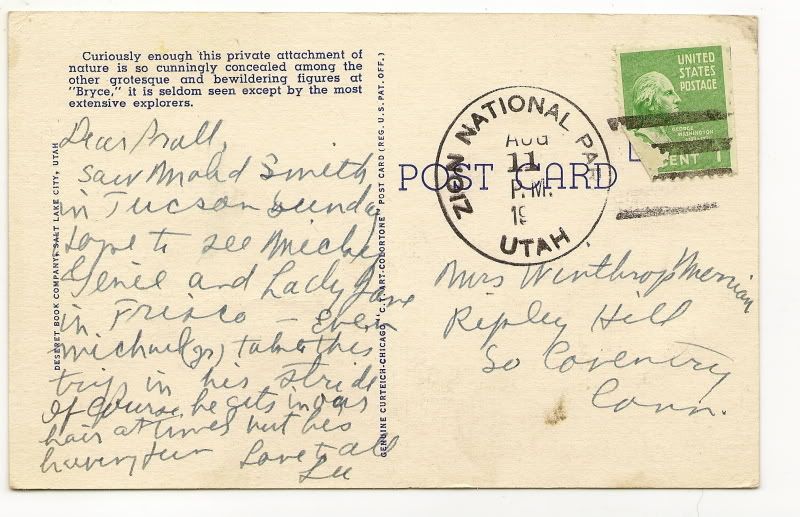 Curiously enough this private attachment of
nature is so cunningly concealed among the
other grotesque and bewildering figures at
"Bryce," it is seldom seen except by the most
extensive explorers.
Dear
Saw Smith
in Tucson Sunday
Hope to see
Genie and Lady Jane
in Frisco — Even
Michael (Jr) takes this
trip in his stride
Of course he gets in our
hair at times but hes
having fun Love to all
Lee
DESERET BOOK COMPANY, SALT LAKE CITY, UTAH
GENUINE CURTEICH-CHICAGO "C. T. ART-COLORTONE" POST CARD (REG. U.S. PAT. OFF.)
POST CARD
ZION NATIONAL PAR
AUG
11
P.M.
19
UTAH
UNITED
STATES
POSTAGE
GEORGE
WASHINGTON
CENT 1
Mrs Winthrop Merriam
Ripley Hill
So Coventry
Conn.